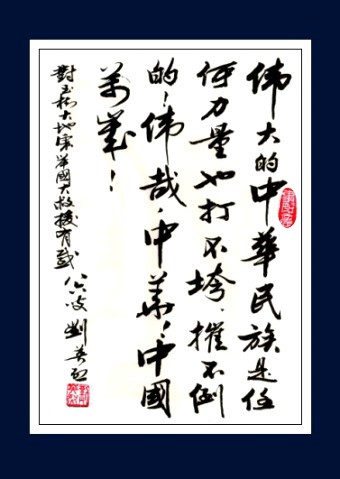 伟大的中華民族是任
何力量也打不垮、摧不倒
的！伟哉、中華！中國
萬歲！
對玉樹大地震举國大救援有感 劉